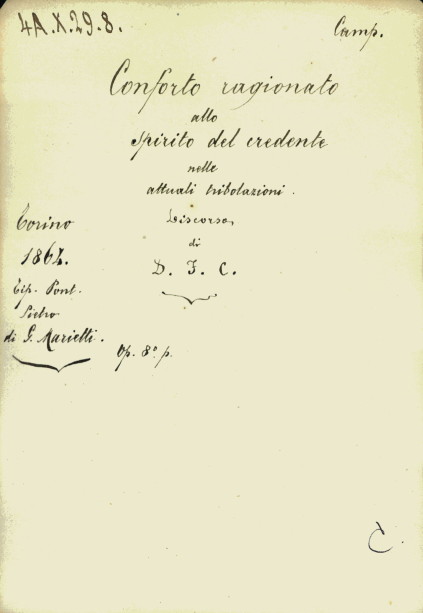 4A.X.29.8.
Camp.
Conforto ragionato
allo
spirito del credente
nelle
attuali tribolazioni.
Discorso
di
D. F. C.
Torino
1864.
Tip. Pont.
Pietro
di G. Marietti.
Op. 8º p.
C